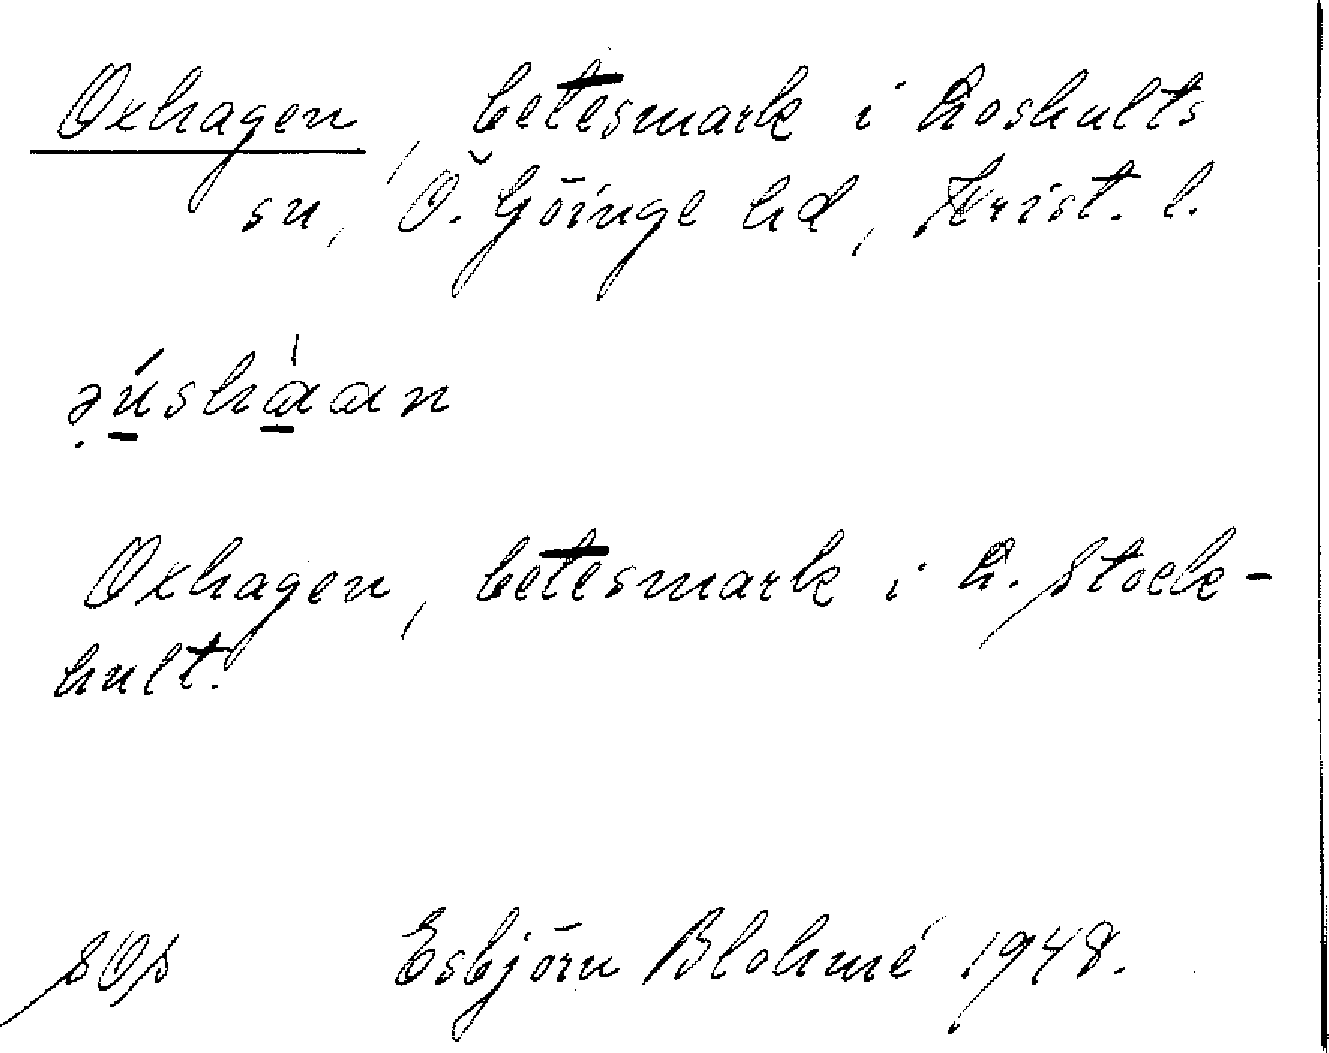 Oxhagen, betesmark i Loshults
sn, Ö. Göinge hd, Krist. l.
Oxhagen, betesmark i L. Stock-
hult.
SOS Esbjörn Blohmé 1948.